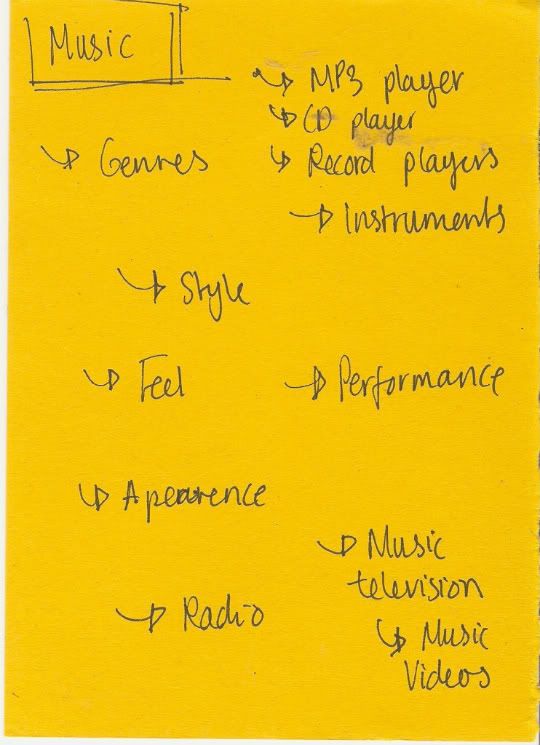 Music
MP3 player
CD player
Genres
Record players
Instruments
Style
Feel
Performance
Apearence
Music
television
Radio
Music
Videos